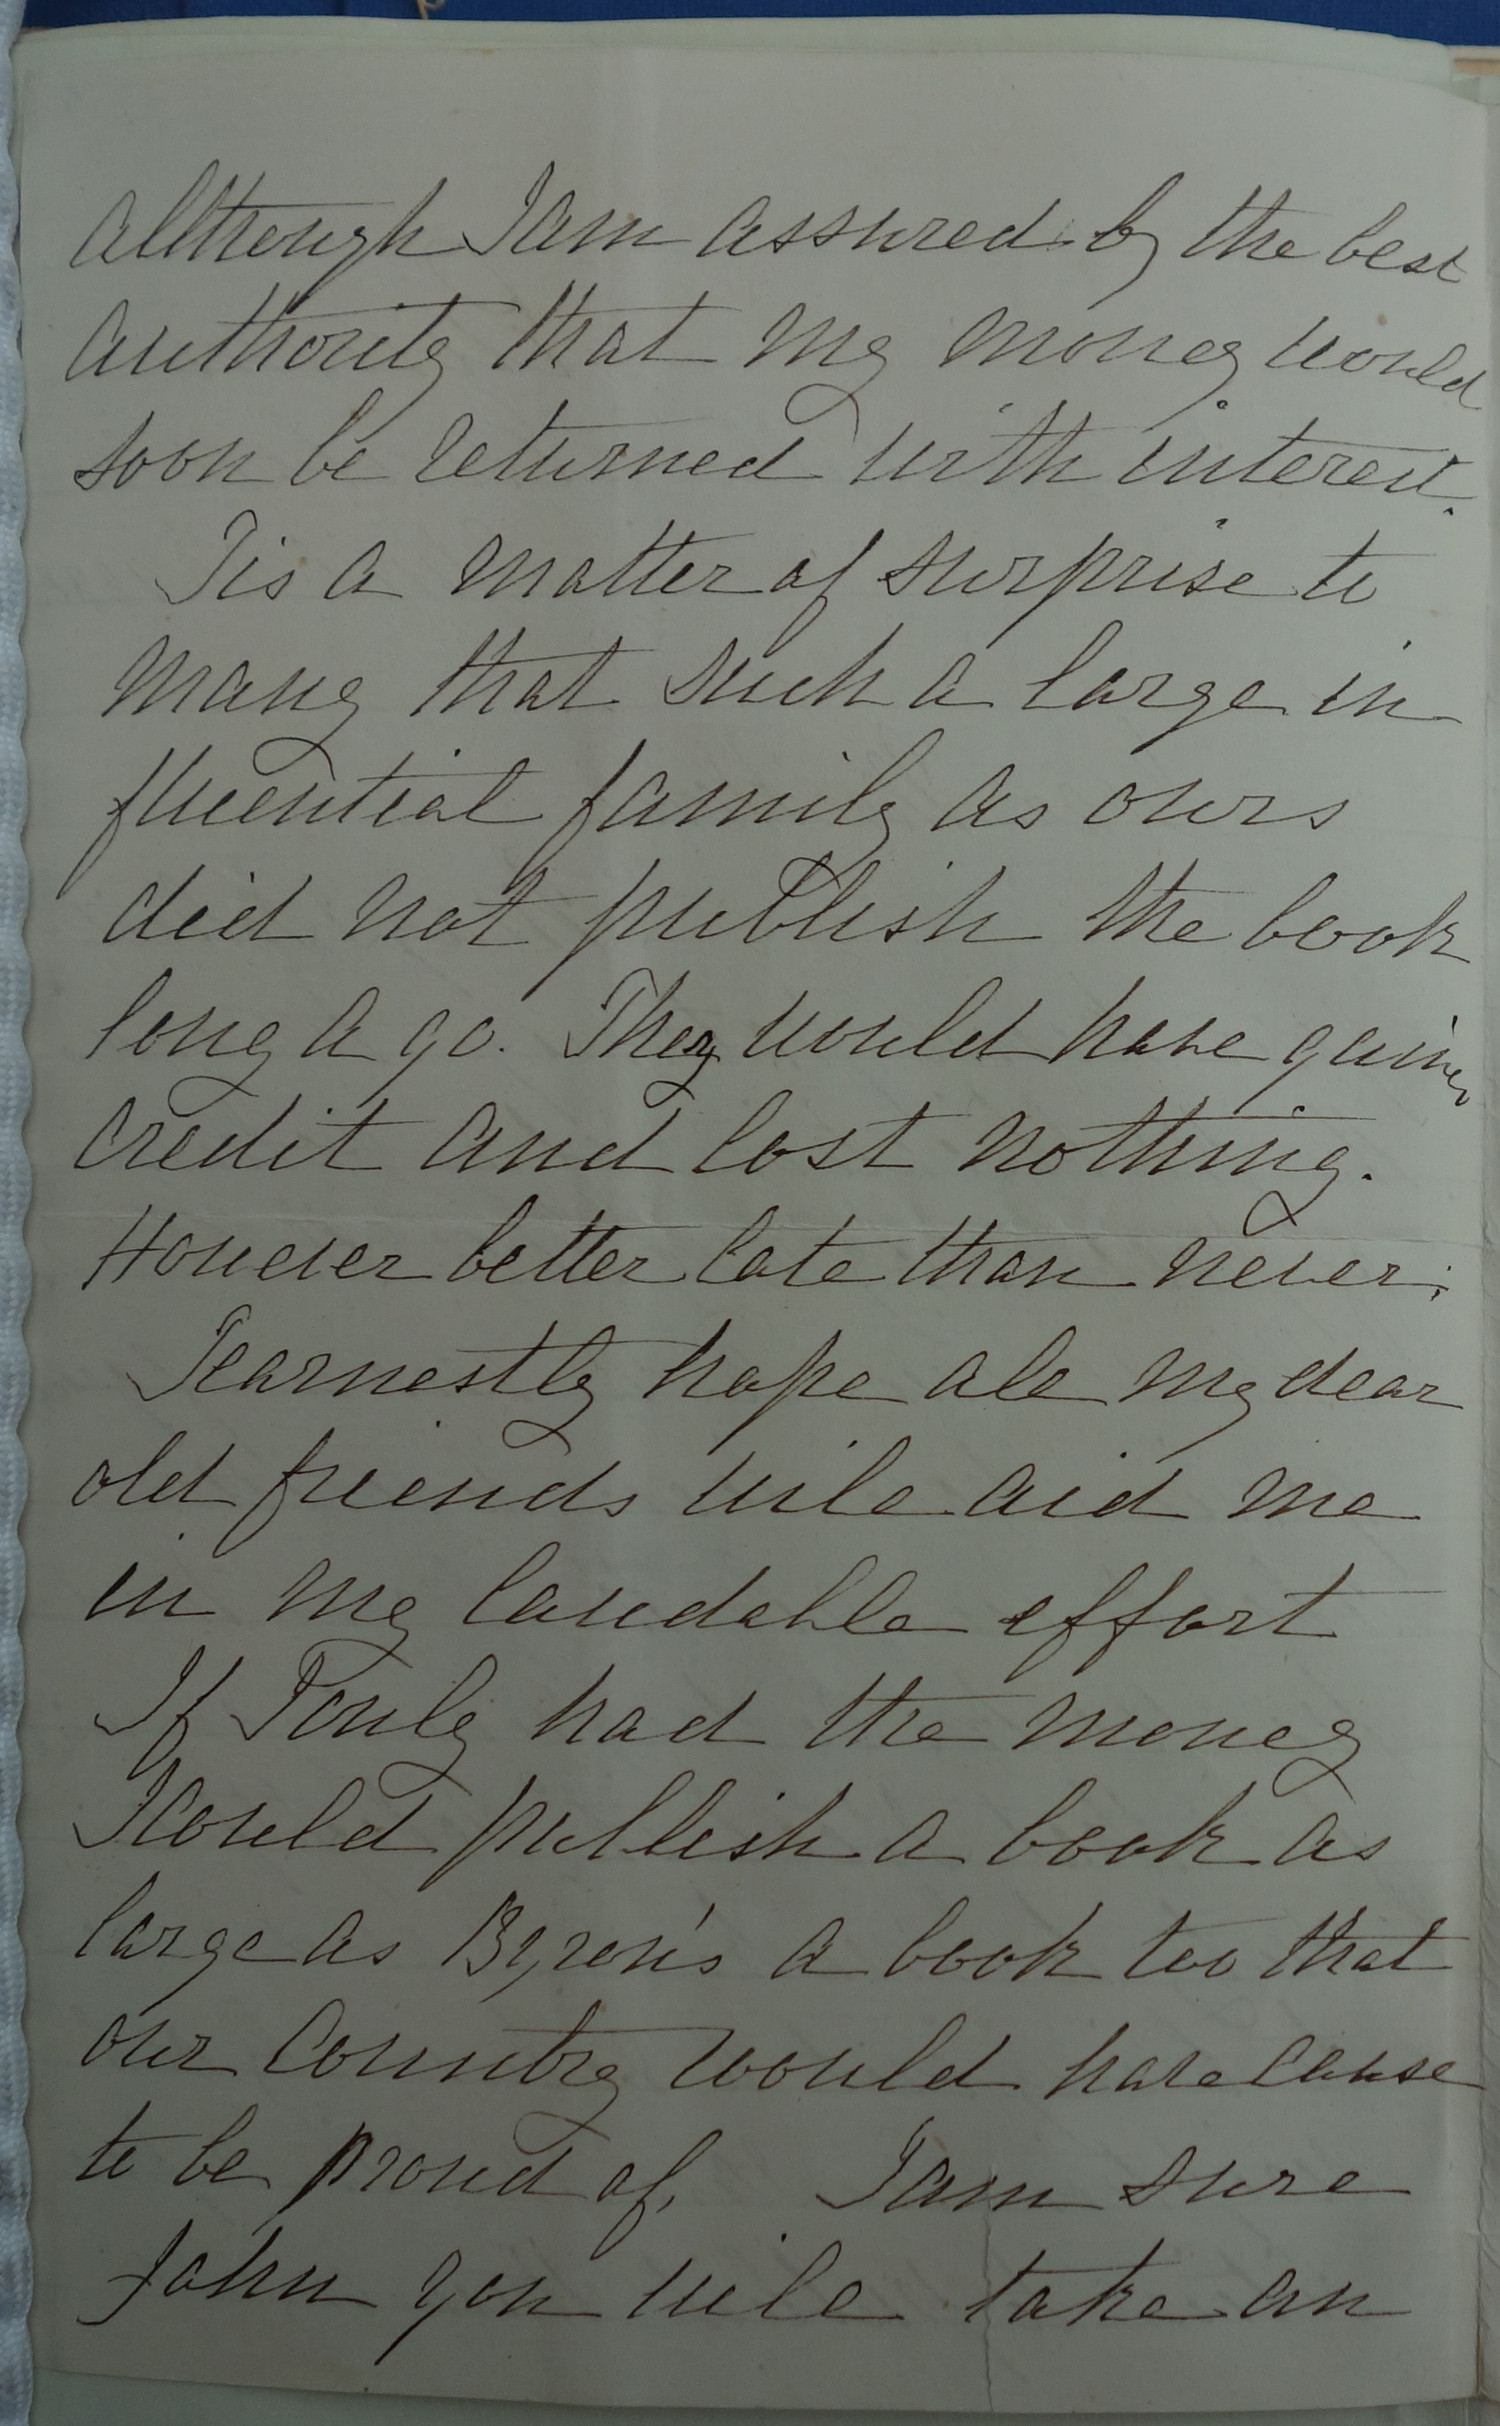 although I am assured by the best
authority that my money would
soon be returned with interest.
Tis a matter of surprise to
many that such a large in
fluential family as ours
did not publish the book
long a go. They would have gained
credit and lost nothing.
However better late than never.
I earnestly hope all my dear
old friends will aid me
in my laudable effort
If I only had the money
I could publish a book as
large as Byron's a book too that
our Country would have cause
to be proud of, I am sure
John you will take an